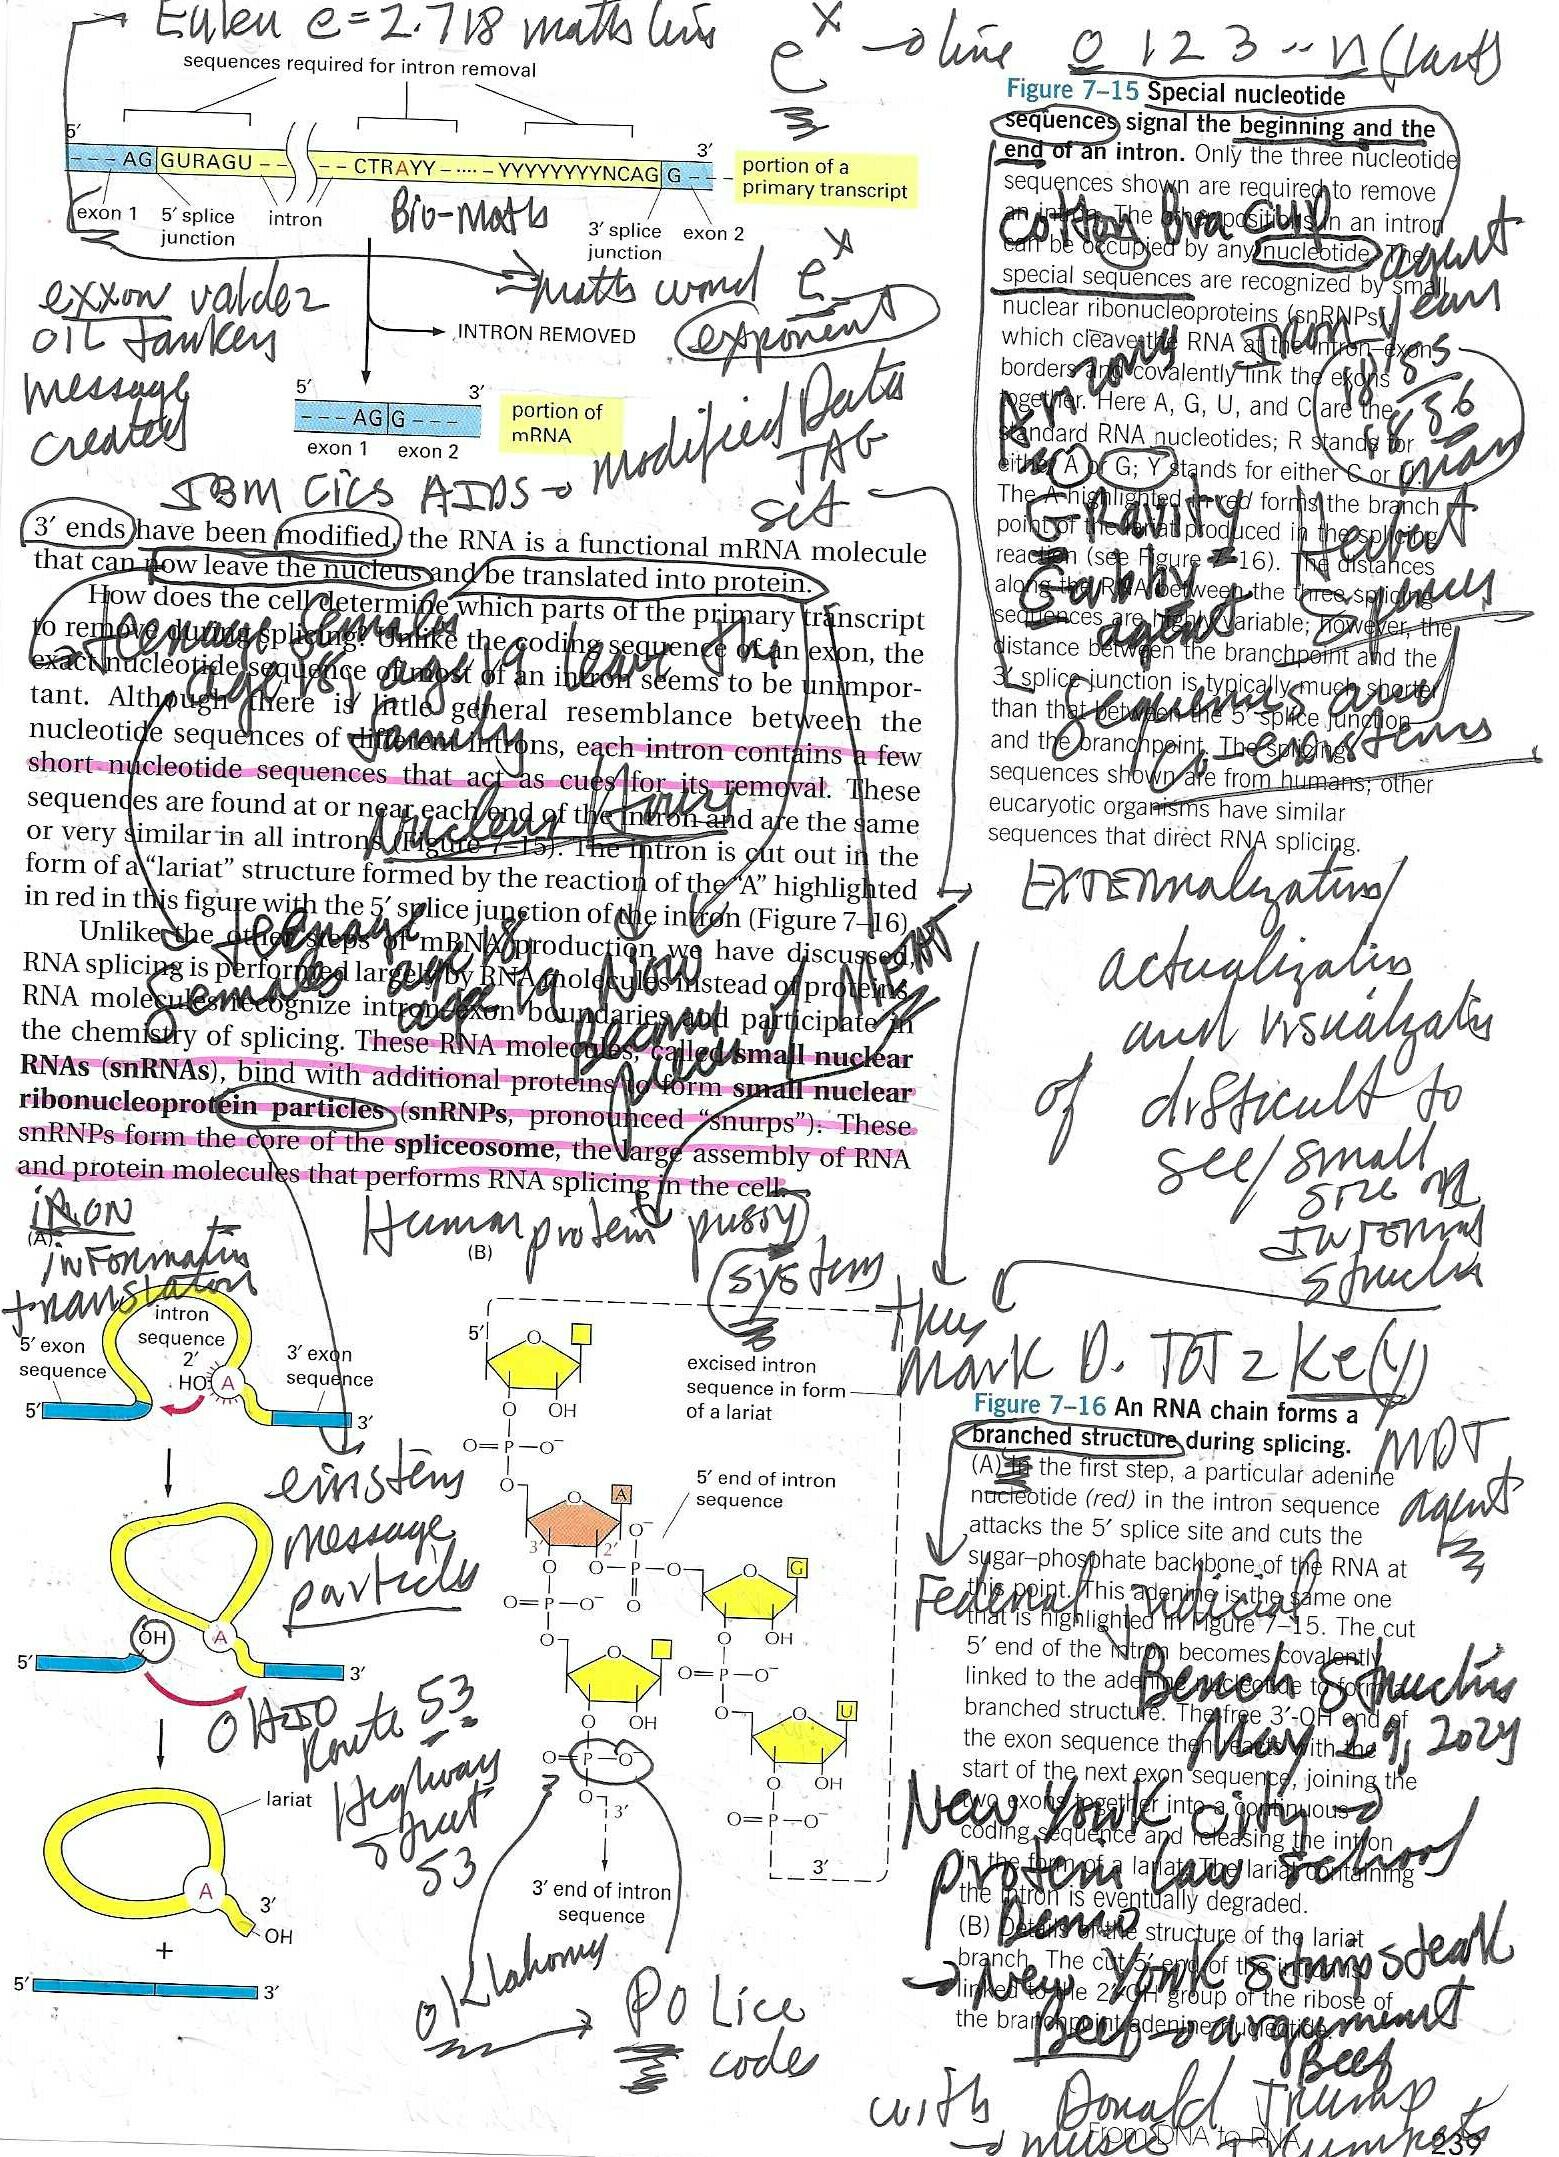 Euler e = 2.718 maths
e^x → line 0 1 2 3 -- n (last)
sequences required for intron removal
5′ 3′
- - - AG GURAGU - - - - CTRAYY - ···· - YYYYYYYYNCAG G - - -
portion of a
primary transcript
exon 1
5′ splice
junction
intron
Bio-Maths
3′ splice
junction
exon 2
exxon valdez
OIL tanker
message
created
maths word e^x
exponent
INTRON REMOVED
5′ 3′
- - - AG G - - -
exon 1 exon 2
portion of
mRNA
modified Data
TAG
set
IBM CICS AIDS →
3′ ends have been modified, the RNA is a functional mRNA molecule
that can now leave the nucleus and be translated into protein.
How does the cell determine which parts of the primary transcript
to remove during splicing? Unlike the coding sequence of an exon, the
exact nucleotide sequence of most of an intron seems to be unimpor-
tant. Although there is little general resemblance between the
nucleotide sequences of different introns, each intron contains a few
short nucleotide sequences that act as cues for its removal. These
sequences are found at or near each end of the intron and are the same
or very similar in all introns (Figure 7–15). The intron is cut out in the
form of a “lariat” structure formed by the reaction of the “A” highlighted
in red in this figure with the 5′ splice junction of the intron (Figure 7–16)
Unlike the other steps of mRNA production we have discussed,
RNA splicing is performed largely by RNA molecules instead of proteins.
RNA molecules recognize intron–exon boundaries and participate in
the chemistry of splicing. These RNA molecules, called small nuclear
RNAs (snRNAs), bind with additional proteins to form small nuclear
ribonucleoprotein particles (snRNPs, pronounced “snurps”). These
snRNPs form the core of the spliceosome, the large assembly of RNA
and protein molecules that performs RNA splicing in the cell.
teenage females
age 18 age 19 leave the
family
Nucleus House
teenage
females age 18
age 19 Now
MEAT
Human protein pussy
system
Figure 7–15 Special nucleotide
sequences signal the beginning and the
end of an intron. Only the three nucleotide
sequences shown are required to remove
an intron. The other positions in an intron
can be occupied by any nucleotide. The
special sequences are recognized by small
nuclear ribonucleoproteins (snRNPs)
which cleave the RNA at the intron–exon
borders and covalently link the exons
together. Here A, G, U, and C are the
standard RNA nucleotides; R stands for
either A or G; Y stands for either C or
The A highlighted in red forms the branch
point of the lariat produced in the splicing
reaction (see Figure 7–16). The distances
along the RNA between the three splicing
sequences are highly variable; however, the
distance between the branchpoint and the
3′ splice junction is typically much shorter
than that between the 5′ splice junction
and the branchpoint. The splicing
sequences shown are from humans; other
eucaryotic organisms have similar
sequences that direct RNA splicing.
cotton Bra cup
agent
years
1855
1856
Gravity
Gabby
agent
EXTERNalization/
actualization
and visualization
of difficult to
see/small
size or
INTERNAL
structure
thus
Mark D. TOT z Ke(y)
MDT
agent
iRON
(A)
information
translation
intron
sequence
5′ exon
sequence
3′ exon
sequence
2′
HO A
5′ 3′
einsteins
message
particles
OH A
5′ 3′
OHIO
Route 53
Highway
street
53
lariat
A
3′
OH
+
5′ 3′
(B)
5′
excised intron
sequence in form
of a lariat
5′ end of intron
sequence
A
G
U
3′ 2′
3′
3′ end of intron
sequence
3′
Oklahoma
POLice
codes
Figure 7–16 An RNA chain forms a
branched structure during splicing.
(A) In the first step, a particular adenine
nucleotide (red) in the intron sequence
attacks the 5′ splice site and cuts the
sugar–phosphate backbone of the RNA at
this point. This adenine is the same one
that is highlighted in Figure 7–15. The cut
5′ end of the intron becomes covalently
linked to the adenine nucleotide to form a
branched structure. The free 3′-OH end of
the exon sequence then reacts with the
start of the next exon sequence, joining the
two exons together into a continuous
coding sequence and releasing the intron
in the form of a lariat. The lariat containing
the intron is eventually degraded.
(B) Details of the structure of the lariat
branch. The cut 5′ end of the intron is
linked to the 2′-OH group of the ribose of
the branchpoint adenine nucleotide.
Federal judicial
Bench structure
May 29, 2024
New York city →
protein law school
Demo
→ New York strip steak
Beef → argument
Beef
with Donald Trump
→ music Trumpets
From DNA to RNA 239